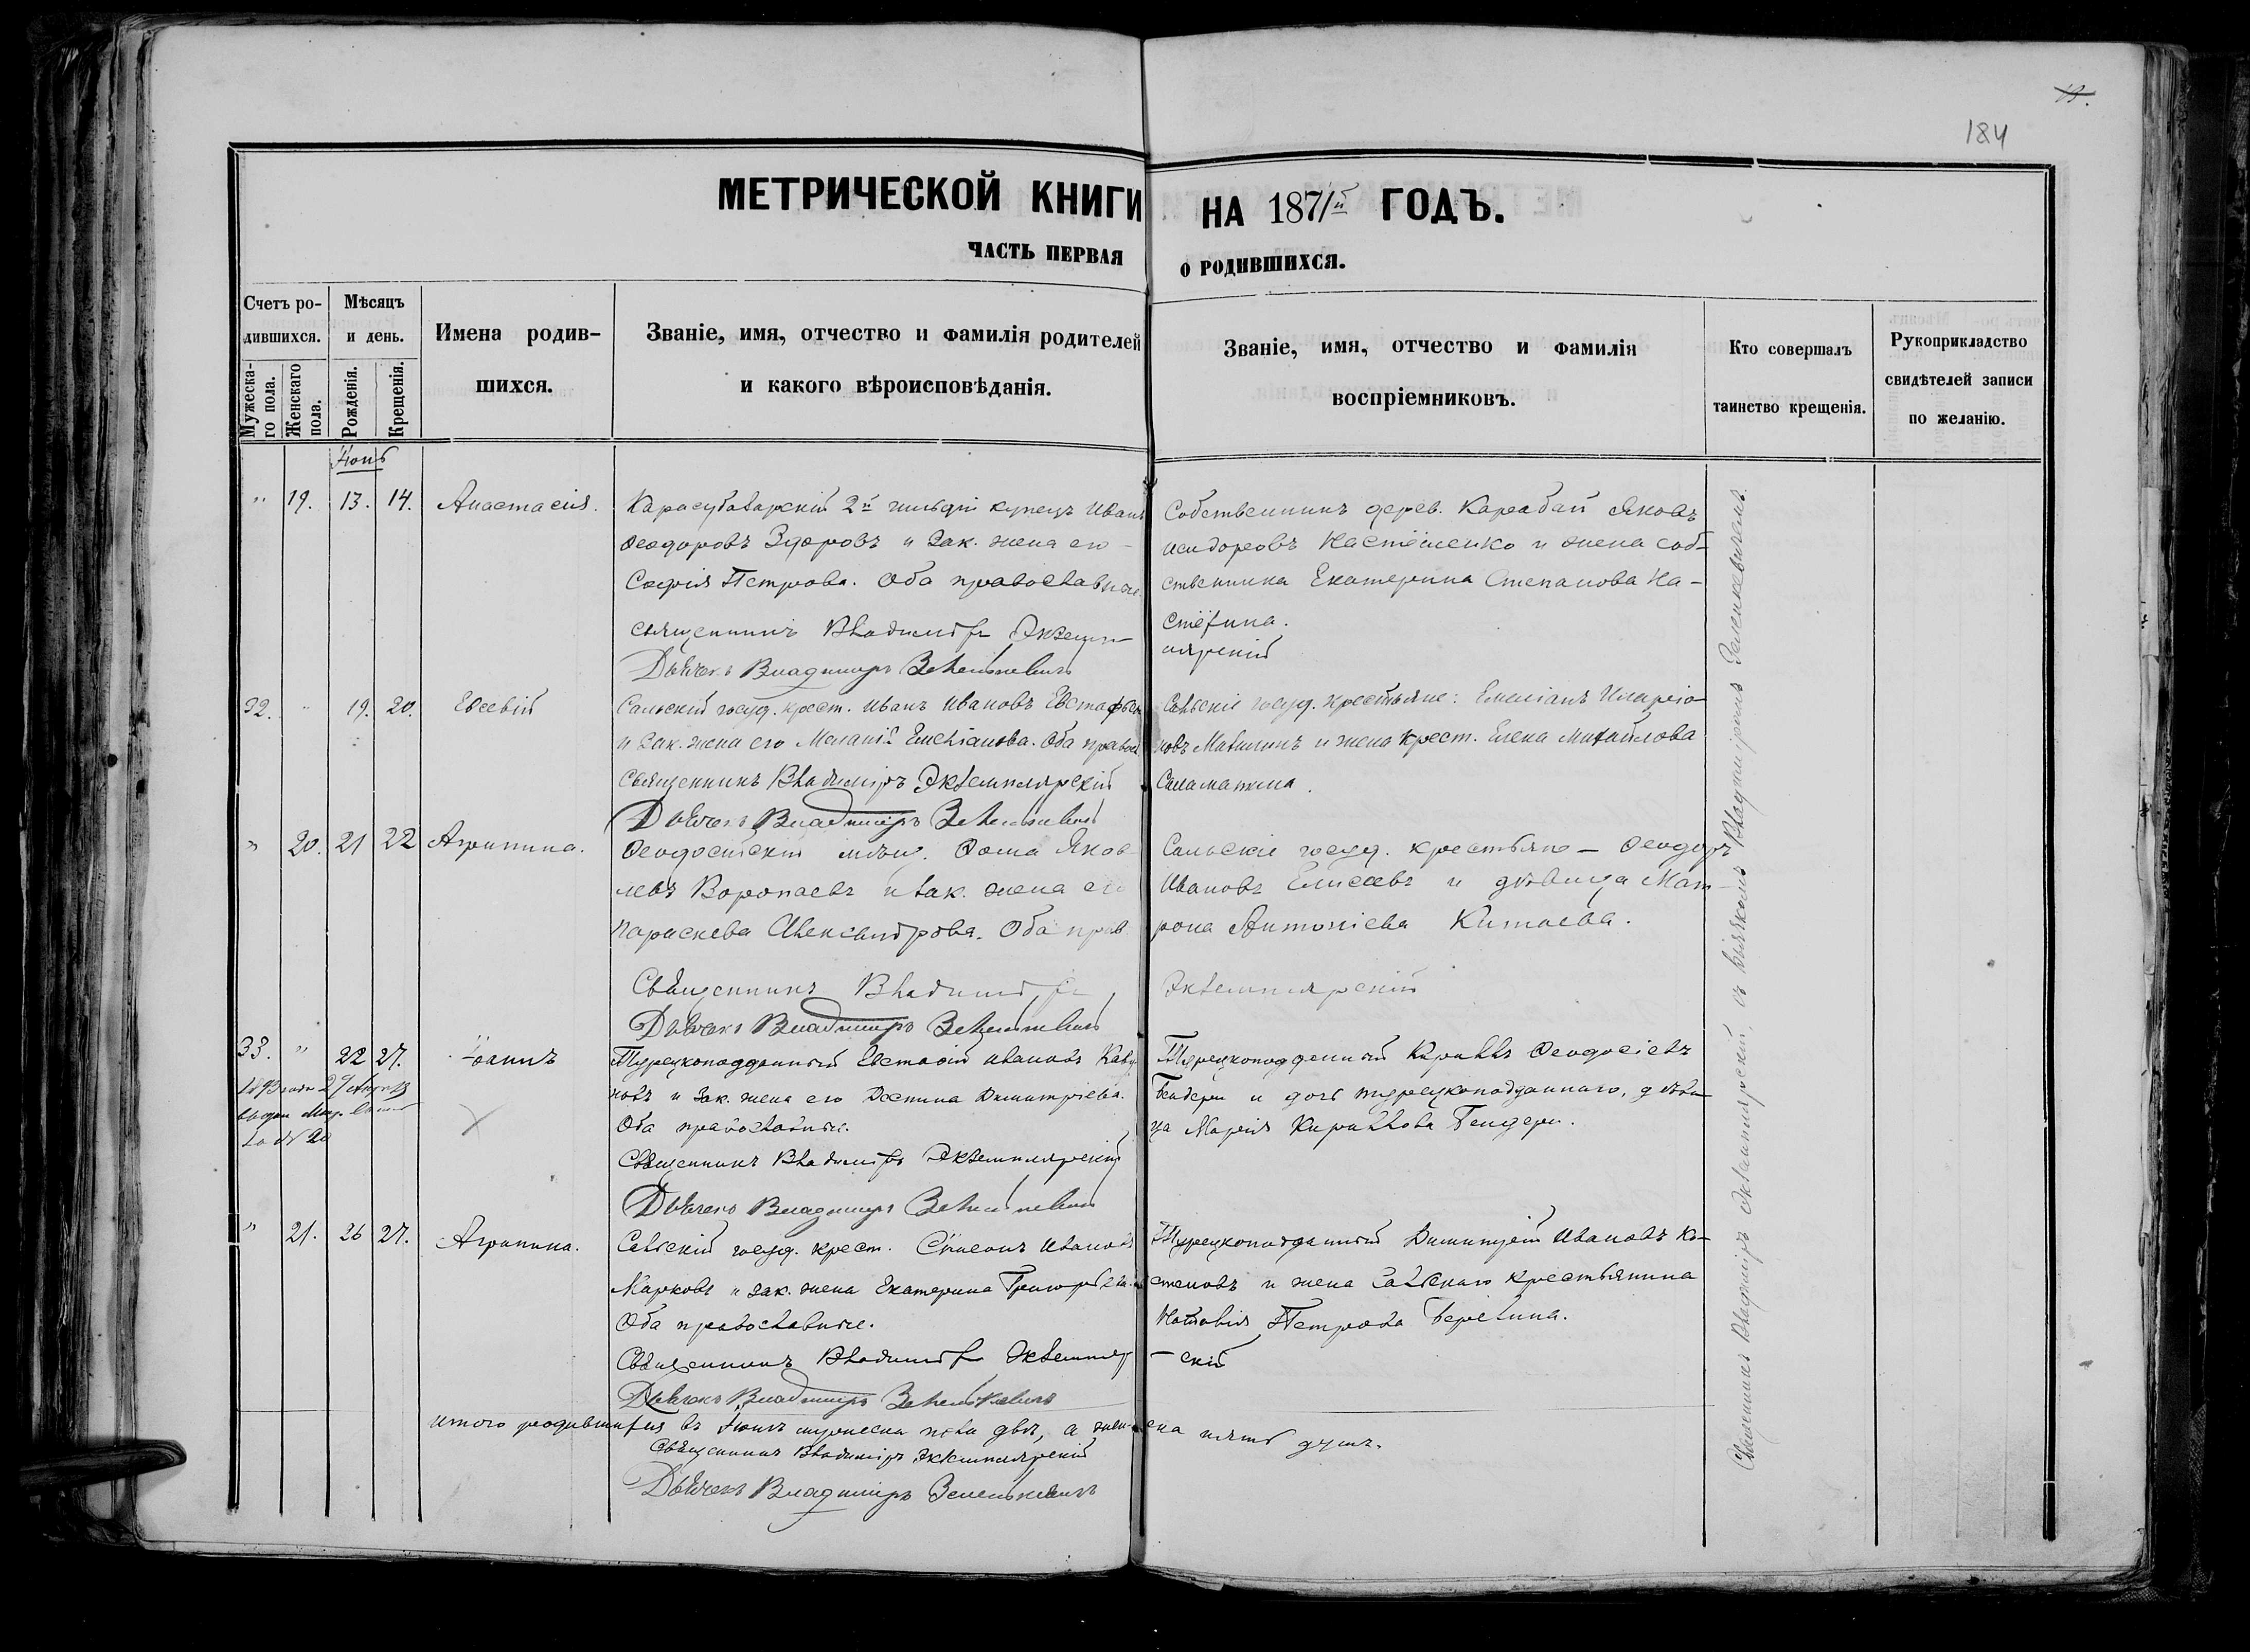 19.
184
МЕТРИЧЕСКОЙ КНИГИ НА 1871й ГОДЪ.
ЧАСТЬ ПЕРВАЯ О РОДИВШИХСЯ.
Счетъ ро-
дившихся.
Мужеска-
го пола.
Женскаго
пола.
Мѣсяцъ
и день.
Рожденія.
Крещенія.
Имена родив-
шихся.
Званіе, имя, отчество и фамилія родителей
и какого вѣроисповѣданія.
Званіе, имя, отчество и фамилія
воспріемниковъ.
Кто совершалъ
таинство крещенія.
Рукоприкладство
свидѣтелей записи
по желанію.
Іюнь
" 19. 13. 14. Анастасія.
Карасубазарскій 2й гильдіи купецъ Иванъ
Ѳеодоровъ Здоровъ и зак. жена его
Софія Петрова. Оба православные.
Священникъ Владиміръ Экземпл-
Дьячекъ Владимиръ Зеленкевичъ
Собственникъ дерев. Карабай Яковъ
Исидоровъ и жена соб-
ственника Екатерина Степанова На-
лярскій
32. " 19. 20. Евсевій
Сальскій госуд. крест. Иванъ Ивановъ
и зак. жена его Меланія Емеліанова. Оба правос
Священникъ Владиміръ Экземплярскій
Дьячекъ Владимиръ Зеленкевичъ
Сальскіе госуд. крестьяне: Емеліанъ Иларіо-
новъ и жена крест. Елена Михайлова
Саламатина.
" 20. 21 22 Агрипина.
Ѳеодосійскій мѣщ. Ѳома Яков-
левъ Воропаевъ и зак. жена его
Параскева Александрова. Оба прав
Священникъ Владиміръ Экземплярскій
Дьячекъ Владимиръ Зеленкевичъ
Сальскіе госуд. крестьяне – Ѳеодоръ
Ивановъ Елисеевъ и дѣвица Мат-
рона Антоніева Китаева.
33. " 22 27. Іоаннъ
1893 года
Турецкоподданный Евстафій Ивановъ
новъ и зак. жена его Деспина Димитріева.
Оба православные.
Священникъ Владиміръ Экземплярскій
Дьячекъ Владимиръ Зеленкевичъ
Турецкоподданный Кириллъ Ѳеодосіевъ
и дочь турецкоподданнаго, дѣви-
ца Марія Кириллова
" 21. 26 27. Агрипина.
Сальскій госуд. крест. Ивановъ
Марковъ и зак. жена Екатерина Григорьева
Оба православные.
Священникъ Владиміръ Экземпляр-скій
Дьячекъ Владимиръ Зеленкевичъ
Турецкоподданный Димитрій Ивановъ Ко-
стеновъ и жена Сальскаго крестьянина
Наталія Петрова Березина.
Итого родившихся въ Іюнѣ мужеска пола двѣ, а женска пять душъ.
Священникъ Владиміръ Экземплярскій
Дьячекъ Владимиръ Зеленкевичъ
Священникъ Владиміръ Экземплярскій, съ дьячкомъ Владиміромъ Зеленкевичемъ.